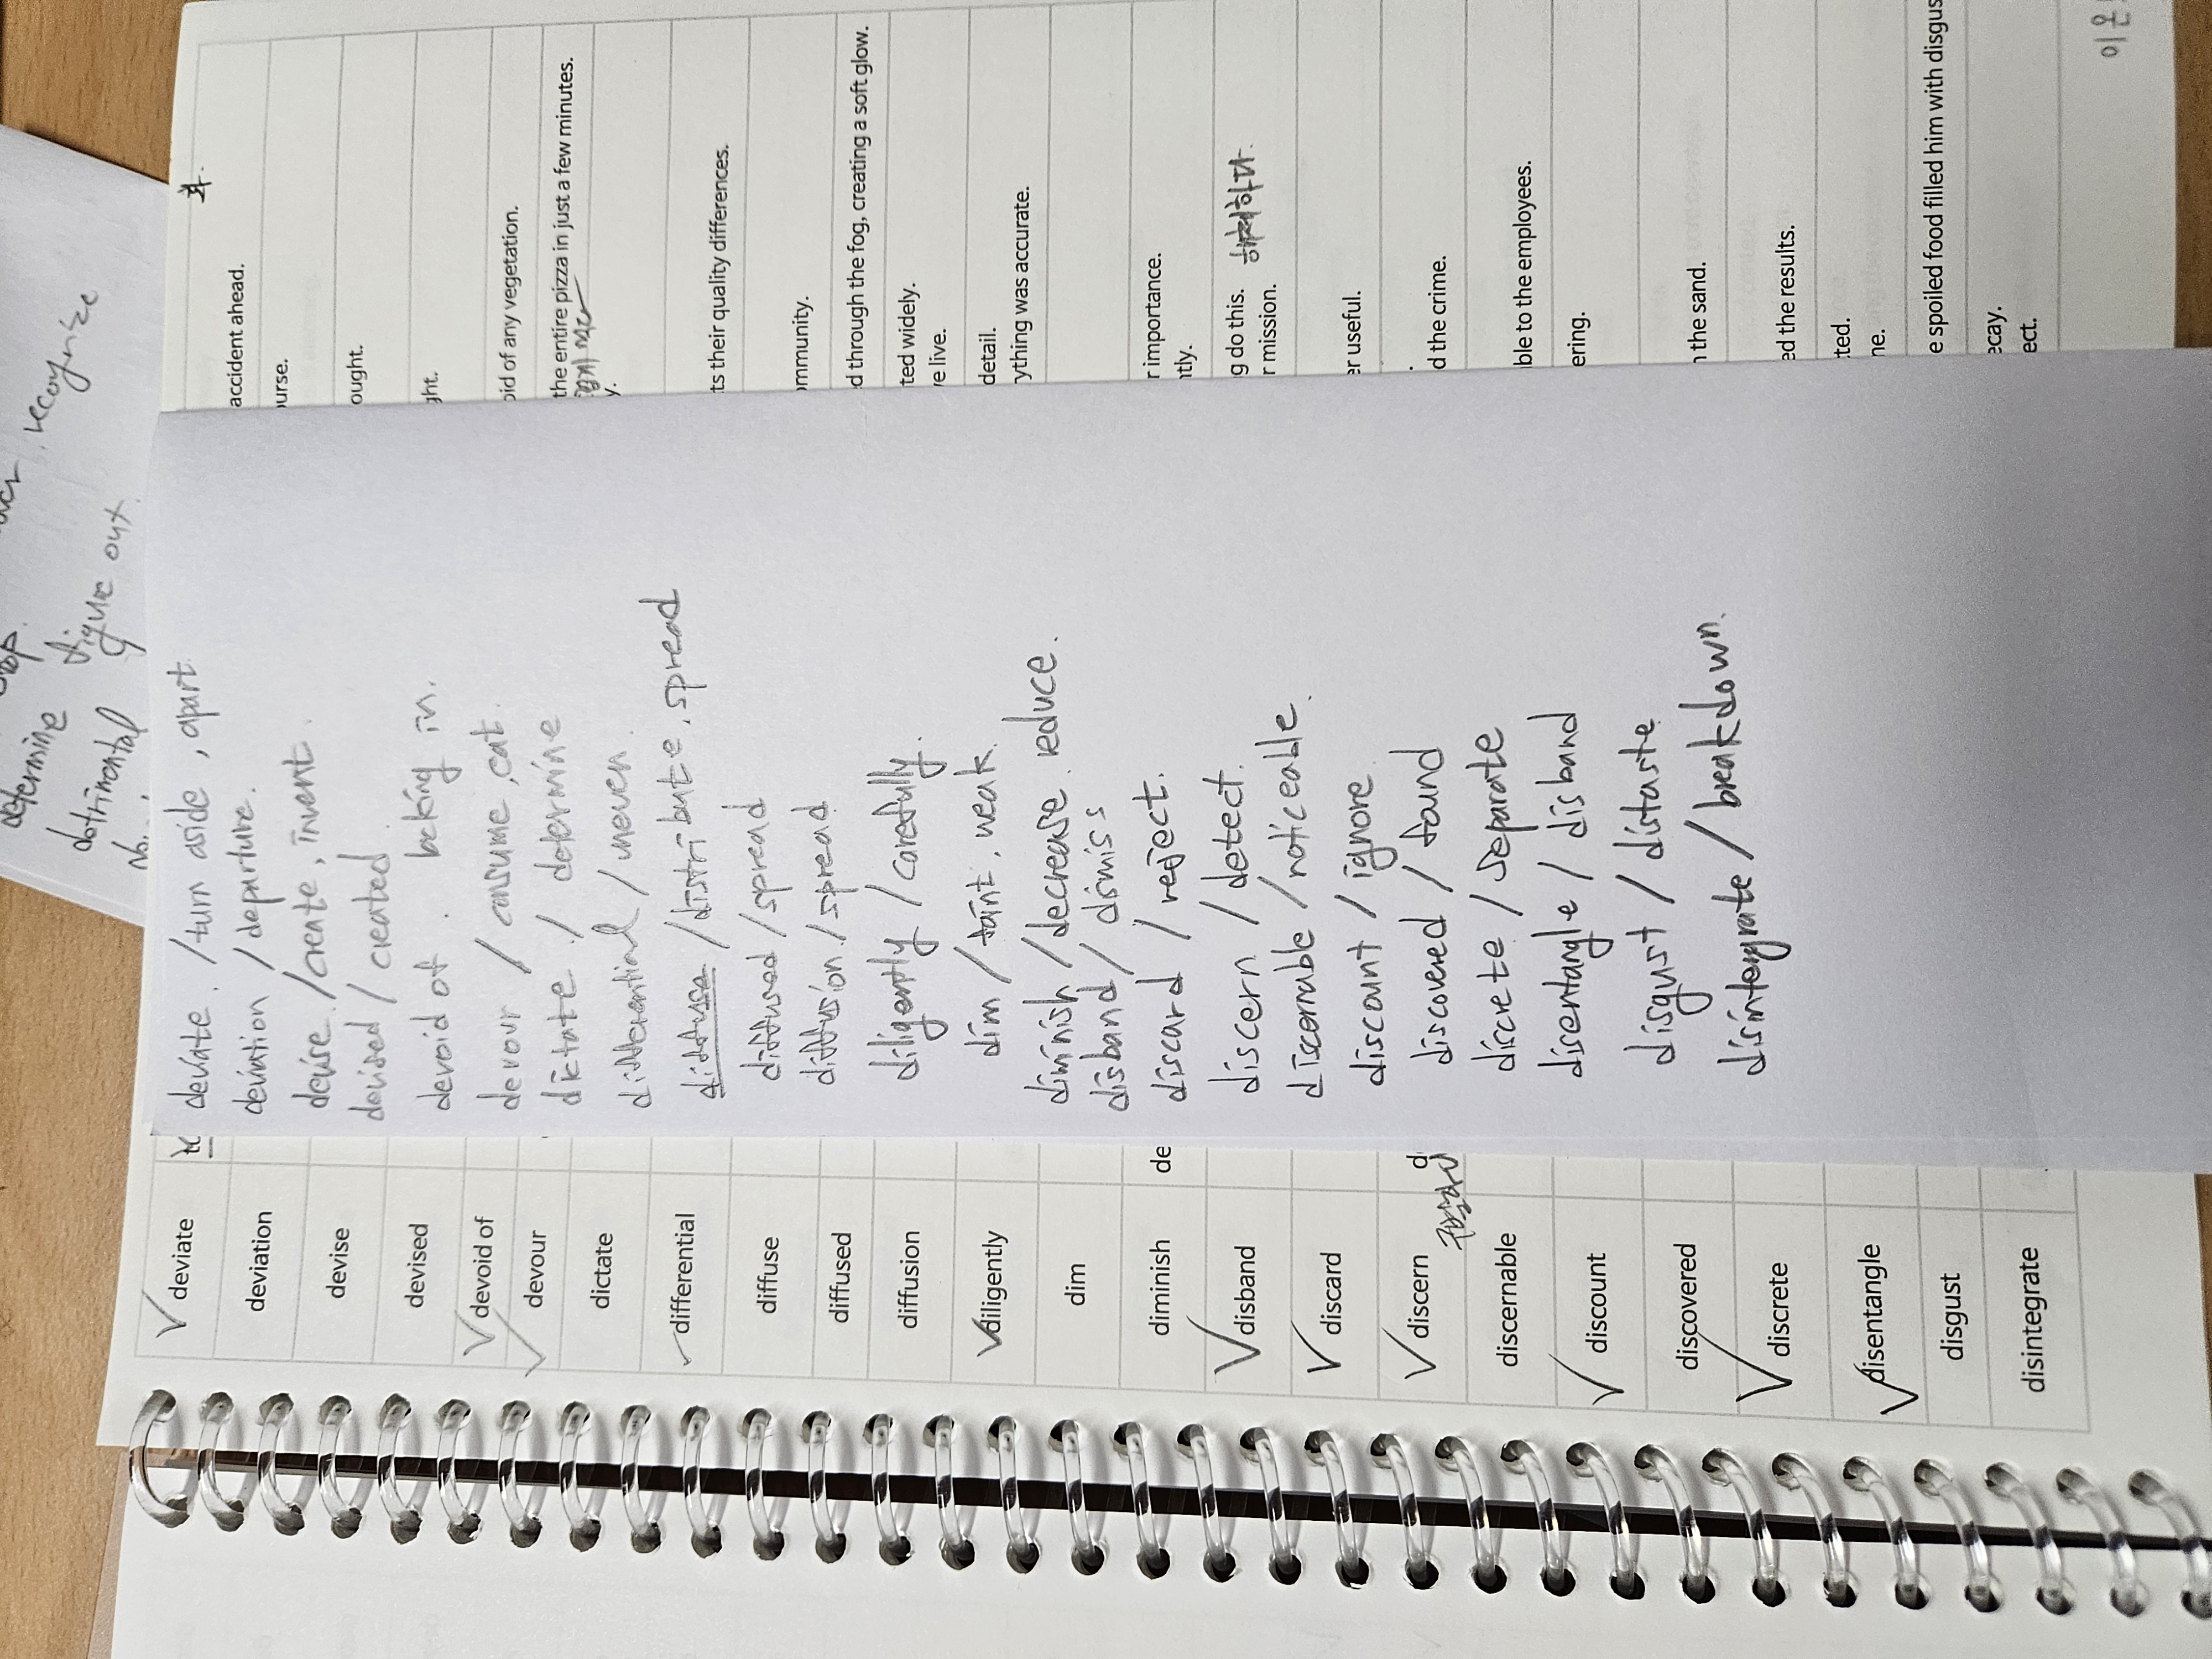 recognize
determine figure out
detrimental
No.
deviate
deviation
devise
devised
devoid of
devour
dictate
differential
diffuse
diffused
diffusion
diligently
dim
diminish
disband
discard
discern
discernable
discount
discovered
discrete
disentangle
disgust
disintegrate
de
deviate / turn aside, apart.
deviation / departure.
devise / create, invent.
devised / created
devoid of . lacking in.
devour / consume, eat.
dictate / determine
differential / uneven.
diffuse / distribute, spread
diffused / spread
diffusion / spread
diligently / carefully.
dim / faint, weak
diminish / decrease, reduce.
disband / dismiss
discard / reject.
discern / detect.
discernable / noticeable.
discount / ignore
discovered / found
discrete / separate
disentangle / disband
disgust / distaste
disintegrate / breakdown.
accident ahead.
urse.
ought.
ht.
oid of any vegetation.
the entire pizza in just a few minutes.
y.
ts their quality differences.
mmunity.
d through the fog, creating a soft glow.
ted widely.
e live.
detail.
rything was accurate.
r importance.
ntly.
g do this. 해체하다.
r mission.
er useful.
d the crime.
ble to the employees.
ering.
n the sand.
ed the results.
ted.
ne.
e spoiled food filled him with disgus
ecay.
ect.